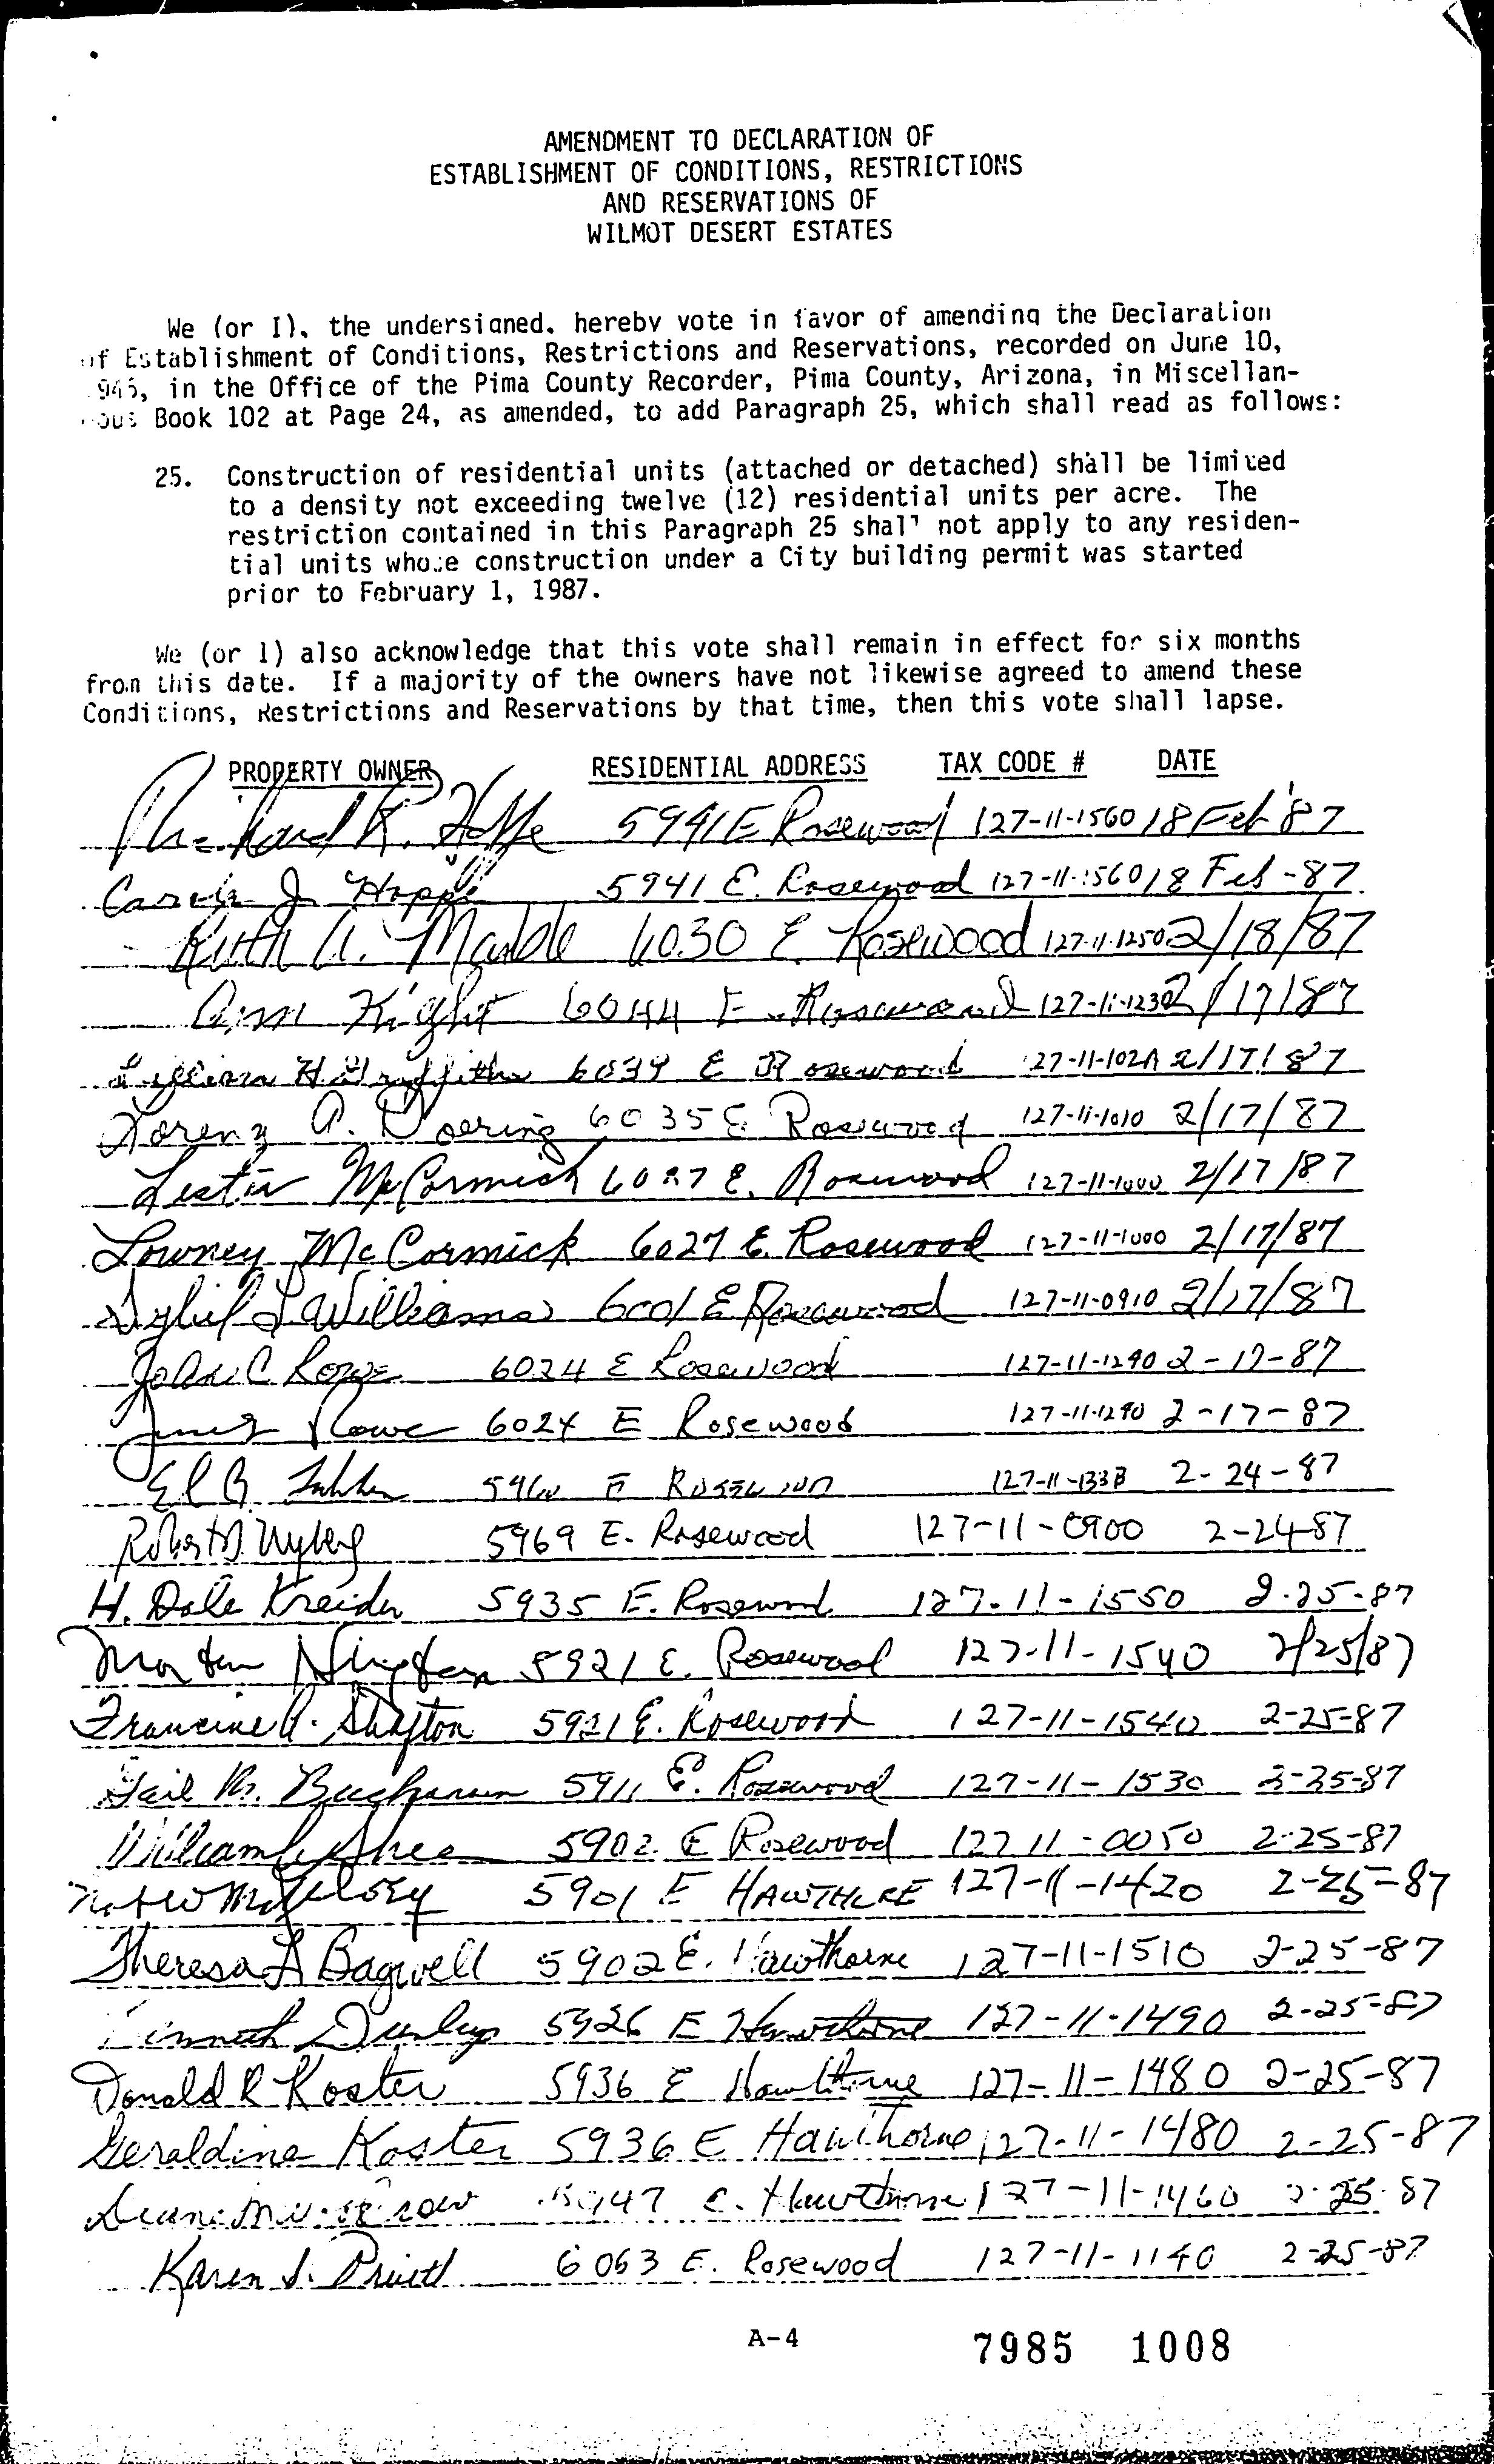 AMENDMENT TO DECLARATION OF
ESTABLISHMENT OF CONDITIONS, RESTRICTIONS
AND RESERVATIONS OF
WILMOT DESERT ESTATES
We (or I), the undersigned, hereby vote in favor of amending the Declaration
of Establishment of Conditions, Restrictions and Reservations, recorded on June 10,
945, in the Office of the Pima County Recorder, Pima County, Arizona, in Miscellan-
ous Book 102 at Page 24, as amended, to add Paragraph 25, which shall read as follows:
25. Construction of residential units (attached or detached) shall be limited
to a density not exceeding twelve (12) residential units per acre. The
restriction contained in this Paragraph 25 shall not apply to any residen-
tial units whose construction under a City building permit was started
prior to February 1, 1987.
We (or I) also acknowledge that this vote shall remain in effect for six months
from this date. If a majority of the owners have not likewise agreed to amend these
Conditions, Restrictions and Reservations by that time, then this vote shall lapse.
PROPERTY OWNER RESIDENTIAL ADDRESS TAX CODE # DATE
Richard R. Hoppe 5941 E Rosewood 127-11-1560 18 Feb '87
J. Hoppe 5941 E. Rosewood 127-11-1560 18 Feb -87
Ruth A. 6030 E. Rosewood 127-11-1250 2/18/87
Ann Kight 6044 E. Rosewood 127-11-1230 2/17/87
Lillian H Griffiths 6039 E Rosewood 127-11-102A 2/17/87
Lorenz A. Doering 6035 E Rosewood 127-11-1010 2/17/87
Lester McCormick 6027 E. Rosewood 127-11-1000 2/17/87
Lowney McCormick 6027 E. Rosewood 127-11-1000 2/17/87
Sybil L Williams 6001 E Rosewood 127-11-0910 2/17/87
Joan C Rowe 6024 E Rosewood 127-11-1290 2-17-87
James Rowe 6024 E Rosewood 127-11-1290 2-17-87
E Rosewood 127-11-133B 2-24-87
Robert D Nyberg 5969 E. Rosewood 127-11-0900 2-24-87
H. Dale Kreider 5935 E. Rosewood 127-11-1550 2-25-87
5921 E. Rosewood 127-11-1540 2/25/87
Francine A. 5921 E. Rosewood 127-11-1540 2-25-87
Gail M. Buchanan 5911 E. Rosewood 127-11-1530 2-25-87
William Shea 5902 E Rosewood 127 11-0050 2-25-87
5901 E HAWTHORE 127-11-1420 2-25-87
Theresa L Bagwell 5902 E. Hawthorne 127-11-1510 2-25-87
Kenneth Dunlap 5926 E Hawthorne 127-11-1490 2-25-87
Donald R Koster 5936 E Hawthorne 127-11-1480 2-25-87
Geraldine Koster 5936 E Hawthorne 127-11-1480 2-25-87
5947 E. Hawthorne 127-11-1460 2-25-87
Karen S. Pruitt 6063 E. Rosewood 127-11-1140 2-25-87
A-4 7985 1008